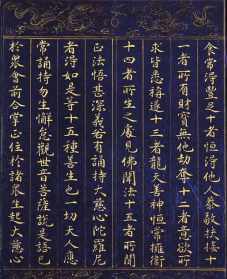 食常得豐足十者恒得他人恭敬扶接十
一者所有財寶無他劫奪十二者意欲所
求皆悉稱遂十三者龍天善神恒常擁衛
十四者所生之處見佛聞法十五者所聞
正法悟甚深義若有誦持大悲心陀羅尼
者得如是等十五種善生也一切天人應
常誦持勿生懈怠觀世音菩薩說是語已
於眾會前合掌正住於諸眾生起大悲心